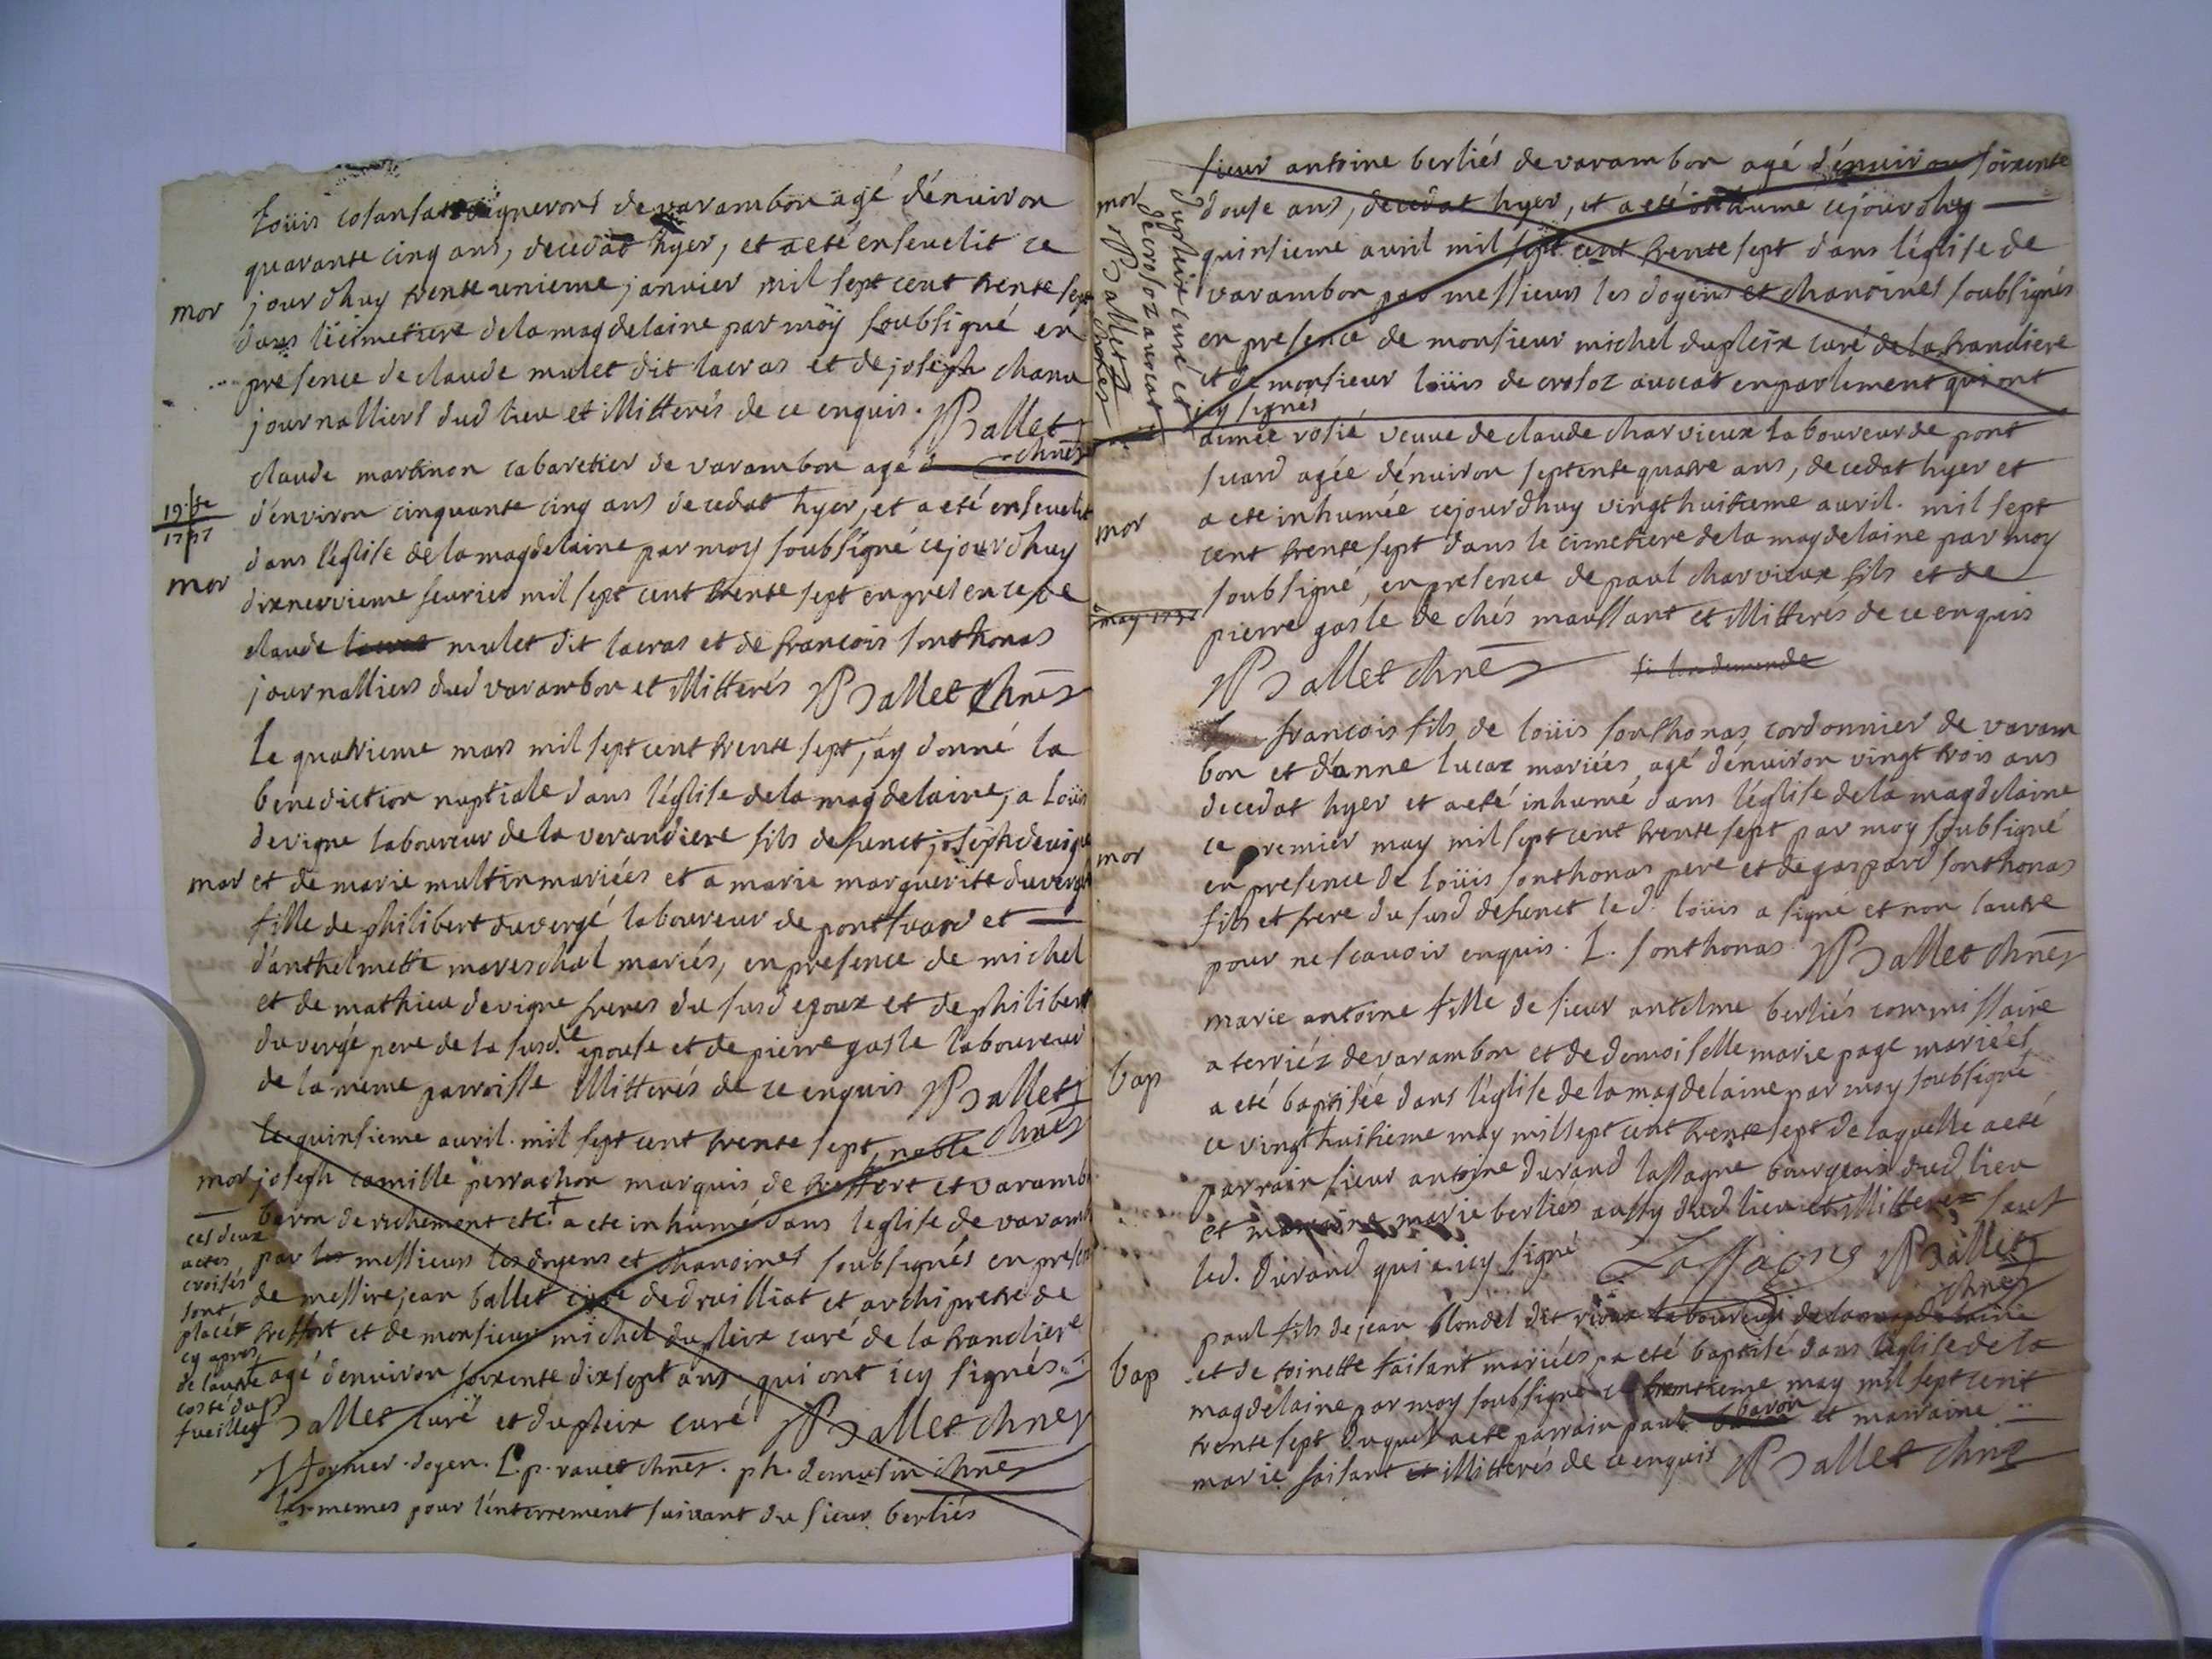 Loüis cosansat vigneront de varambon agé d'énuiron
quarante cinq ans, decedat hyer, et a eté enseuelit ce
mor jourdhuy trente unieme januier mil sept cent trente sept
dans le cimetiere dela magdelaine par moÿ soubsigné en
presence de claude mulet dit lacras et de joseph chana
journalliers dud lieu et illitterés de ce enquis. Ballet
chner
claude martinon cabaretier de varambon agé
19 fe d'environ cinquante cinq ans decedat hyer, et a eté enseuelit
1737
dans l'églite de la magdelaine par moy soubsigné cejourdhuy
mor
dixneuvieme feurier mil sept cent trente sept en presence de
claude mulet dit lacras et de francois sonthonas
journalliers dud varambon et illitterés Ballet chner
Le quatrieme mars mil sept cent trente sept, j'ay donné la
benediction nuptiale dans l'églite dela magdelaine, a Loüis
devigne laboureur de la verandiere fils defunct joseph devigne
mar et de marie multin mariées et a marie marguerite duvergé
fille de philibert duvergé laboureur de pont suard et
d'anthelmette mareschal mariés, en presence de michel
et de mathieu devigne freres du susd epoux et de philibert
duvergé pere de la susd.e epouse et de pierre gasle laboureur
de la meme parroisse illitterés de ce enquis Ballet
chner
Le quinsieme auril. mil sept cent trente sept, noble
mor joseph camille perrachon marquis de treffort et varamb
baron de richement etc.+ a ete inhumé dans leglise de varamb
par les messieurs les doyens et chanoines soubsignés en presen
de messire jean ballet curé de druilliat et archipretre de
treffort et de monsieur michel dupleix curé de la tranclier e
+ agé denuiron soixente dix sept ans qui ont icy signés
ces deux
actes
croisés
sont
placés
cy apres
de lautre
costé du
fueillet
Ballet curé et dupleix curé Ballet chner
fornier doyen. L. p. rauet chner. ph. demusin chner
les memes pour l'énterrement suiuant du sieur berliés
sieur antoine berliés de varambon agé d'énuiron soixente
mor
douse ans, decedat hyer, et a eté inhumé cejourdhy
quinsieme auril mil sept cent trente sept dans l'églite de
varambon par messieurs les doyens et chanoines soubsignés
en presence de monsieur michel dupleix curé de la trandiere
et de monsieur loüis de crosoz auocat en parlement qui ont
icy signés
dupleix curé et
decrosoz auocat
Ballet chner
aimée rosié veuue de claude charvieux laboureur de pont
suard agée d'énuiron septente quatre ans, decedat hyer et
mor a ete inhumée cejourdhuy vingt huitieme auril. mil sept
cent trente sept dans le cimetiere dela magdelaine par moy
soubsigné, en presence de paul charvieux fils et de
may 1737 pierre gasle de chés maussant et illitterés de ce enquis
Ballet chner
francois fils de loüis sonthonas cordonnier de varam
bon et d'anne lucax mariées, agé d'énuiron vingt trois ans
decedat hyer et a eté inhumé dans l'églite dela magdelaine
mor ce premier may mil sept cent trente sept par moy soubsigné
en presence de loüis sonthonas pere et de gaspard sonthonas
fils et frere du susd defunct led. loüis a signé et non lautre
pour ne scauoir enquis. L. sonthonas Ballet chner
marie antoine fille de sieur antelme berliés commissaire
a terriéz de varambon et de demoiselle marie page mariées
bap a eté baptisée dans l'églite de la magdelaine par moy soubsigné
ce vingt huitieme may mil sept cent trente sept de laquelle a eté
parrain sieur antoine durand lassagne bourgeois dud lieu
et marraine marie berliés aussy dud lieu et illitteres sauf
led. durand qui a icy signé Lassagne Ballet
chner
paul fils de jean blondel dit vioux laboureur de la magdelaine
bap et de toinette faisant mariées, a eté baptisé dans l'églite de la
magdelaine par moy soubsigné ce trentieme may mil sept cent
trente sept duquel a ete parrain paul baron et marraine
marie faisant et illitterés de ce enquis Ballet chner